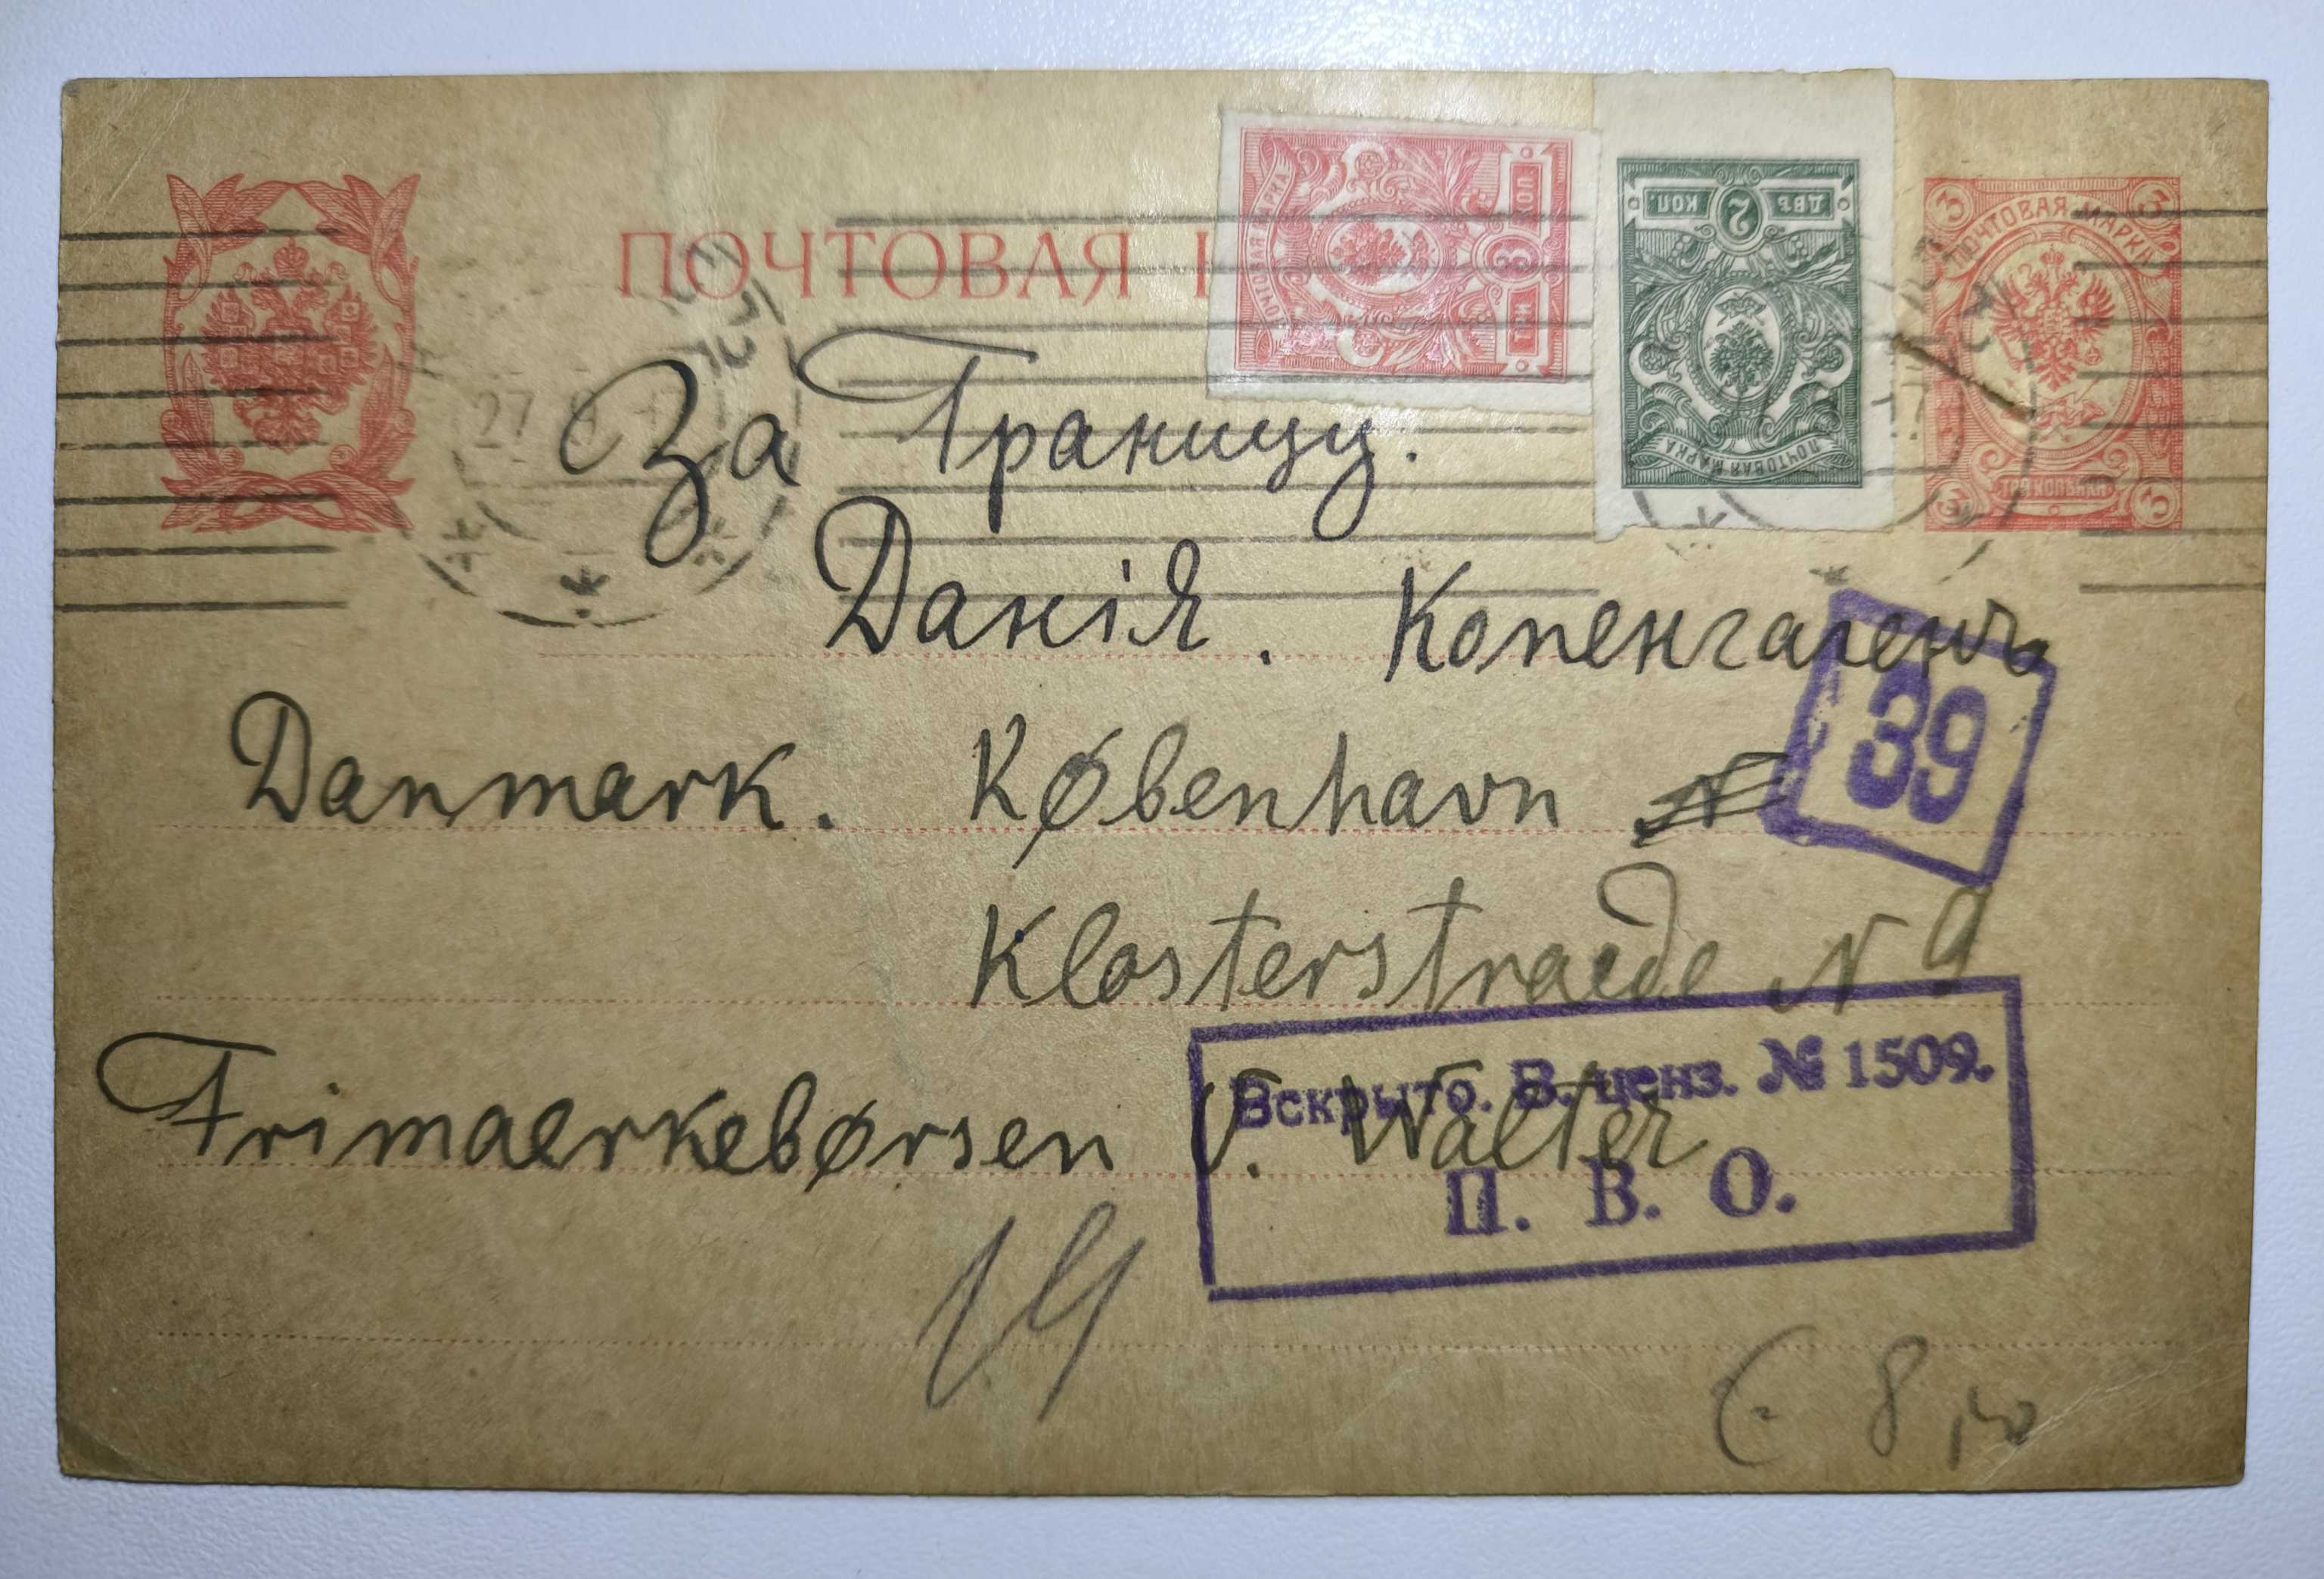 ПОЧТОВАЯ
ПОЧТОВАЯ МАРКА
3 ТРИ КОП.
ПОЧТОВАЯ МАРКА
2 ДВѢ КОП.
3 ПОЧТОВАЯ МАРКА 3
3 ТРИ КОПѢЙКИ 3
27
За Границу.
Данія. Копенгагенъ
39
Danmark. København
Klosterstraede N 9
Вскрыто. В. ценз. № 1509.
Frimaerkebørsen V. Walter
П. В. О.